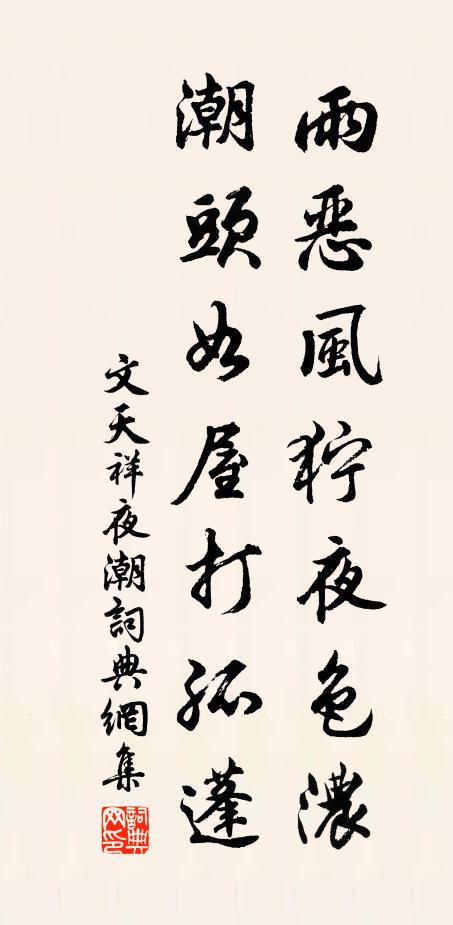 雨惡風獰夜色濃
潮頭如屋打孤蓬
文天祥夜潮詞典網集
詞典網印